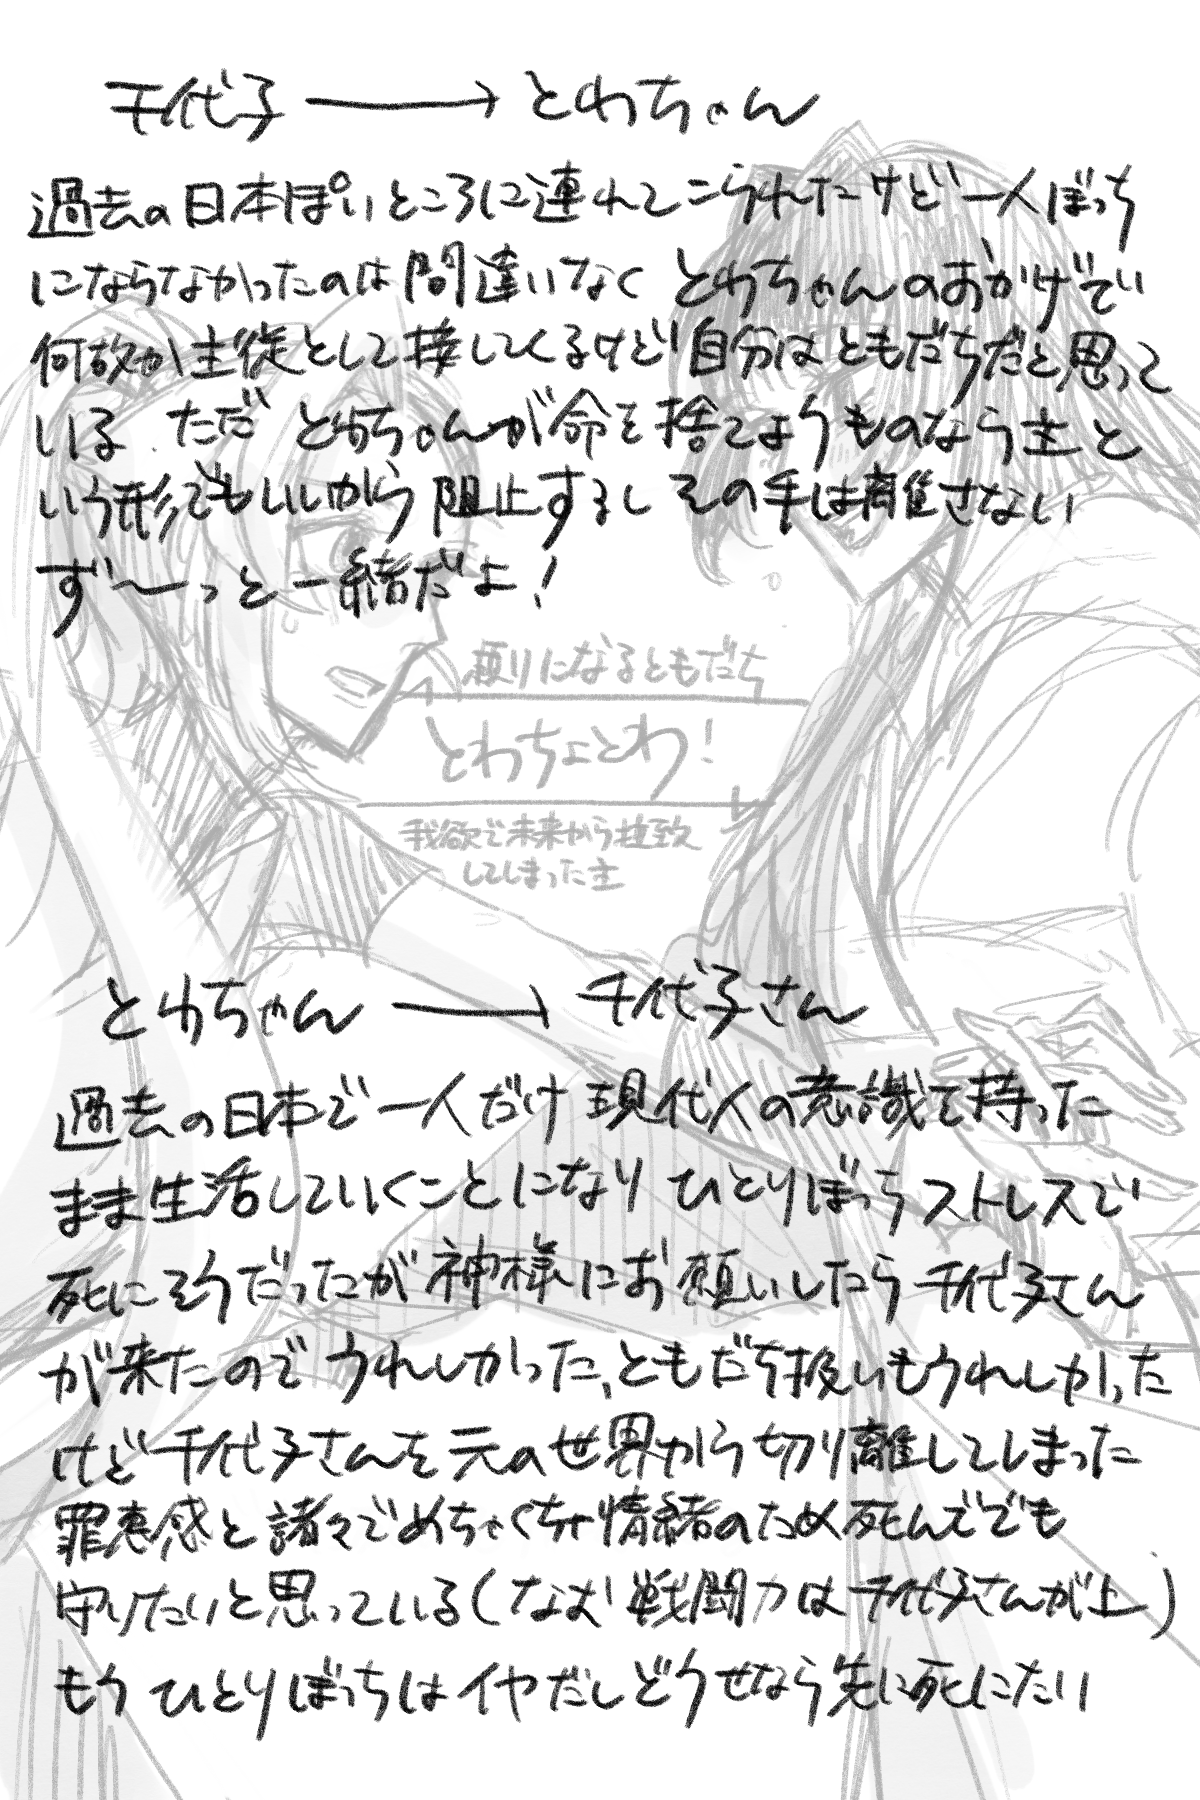 千代子→とわちゃん
過去の日本ぽいところに連れてこられたけど一人ぼっち
にならなかったのは間違いなくとわちゃんのおかげで
何故か主従として接してくるけど自分はともだちだと思って
いる。ただとわちゃんが命を捨てようものなら主と
いう形でもいいから阻止するしその手は離さない
ず〜っと一緒だよ!
頼りになるともだち
とわちょとわ!
我欲で未来から拉致
してしまった主
とわちゃん→千代子さん
過去の日本で一人だけ現代人の意識を持った
まま生活していくことになりひとりぼっちストレスで
死にそうだったが神様にお願いしたら千代子さん
が来たのでうれしかった、ともだち扱いもうれしかった
けど千代子さんを元の世界から切り離してしまった
罪悪感と諸々でめちゃくちゃ情緒のため死んででも
守りたいと思っている(なお戦闘力は千代子さんが上)
もうひとりぼっちはイヤだしどうせなら先に死にたい